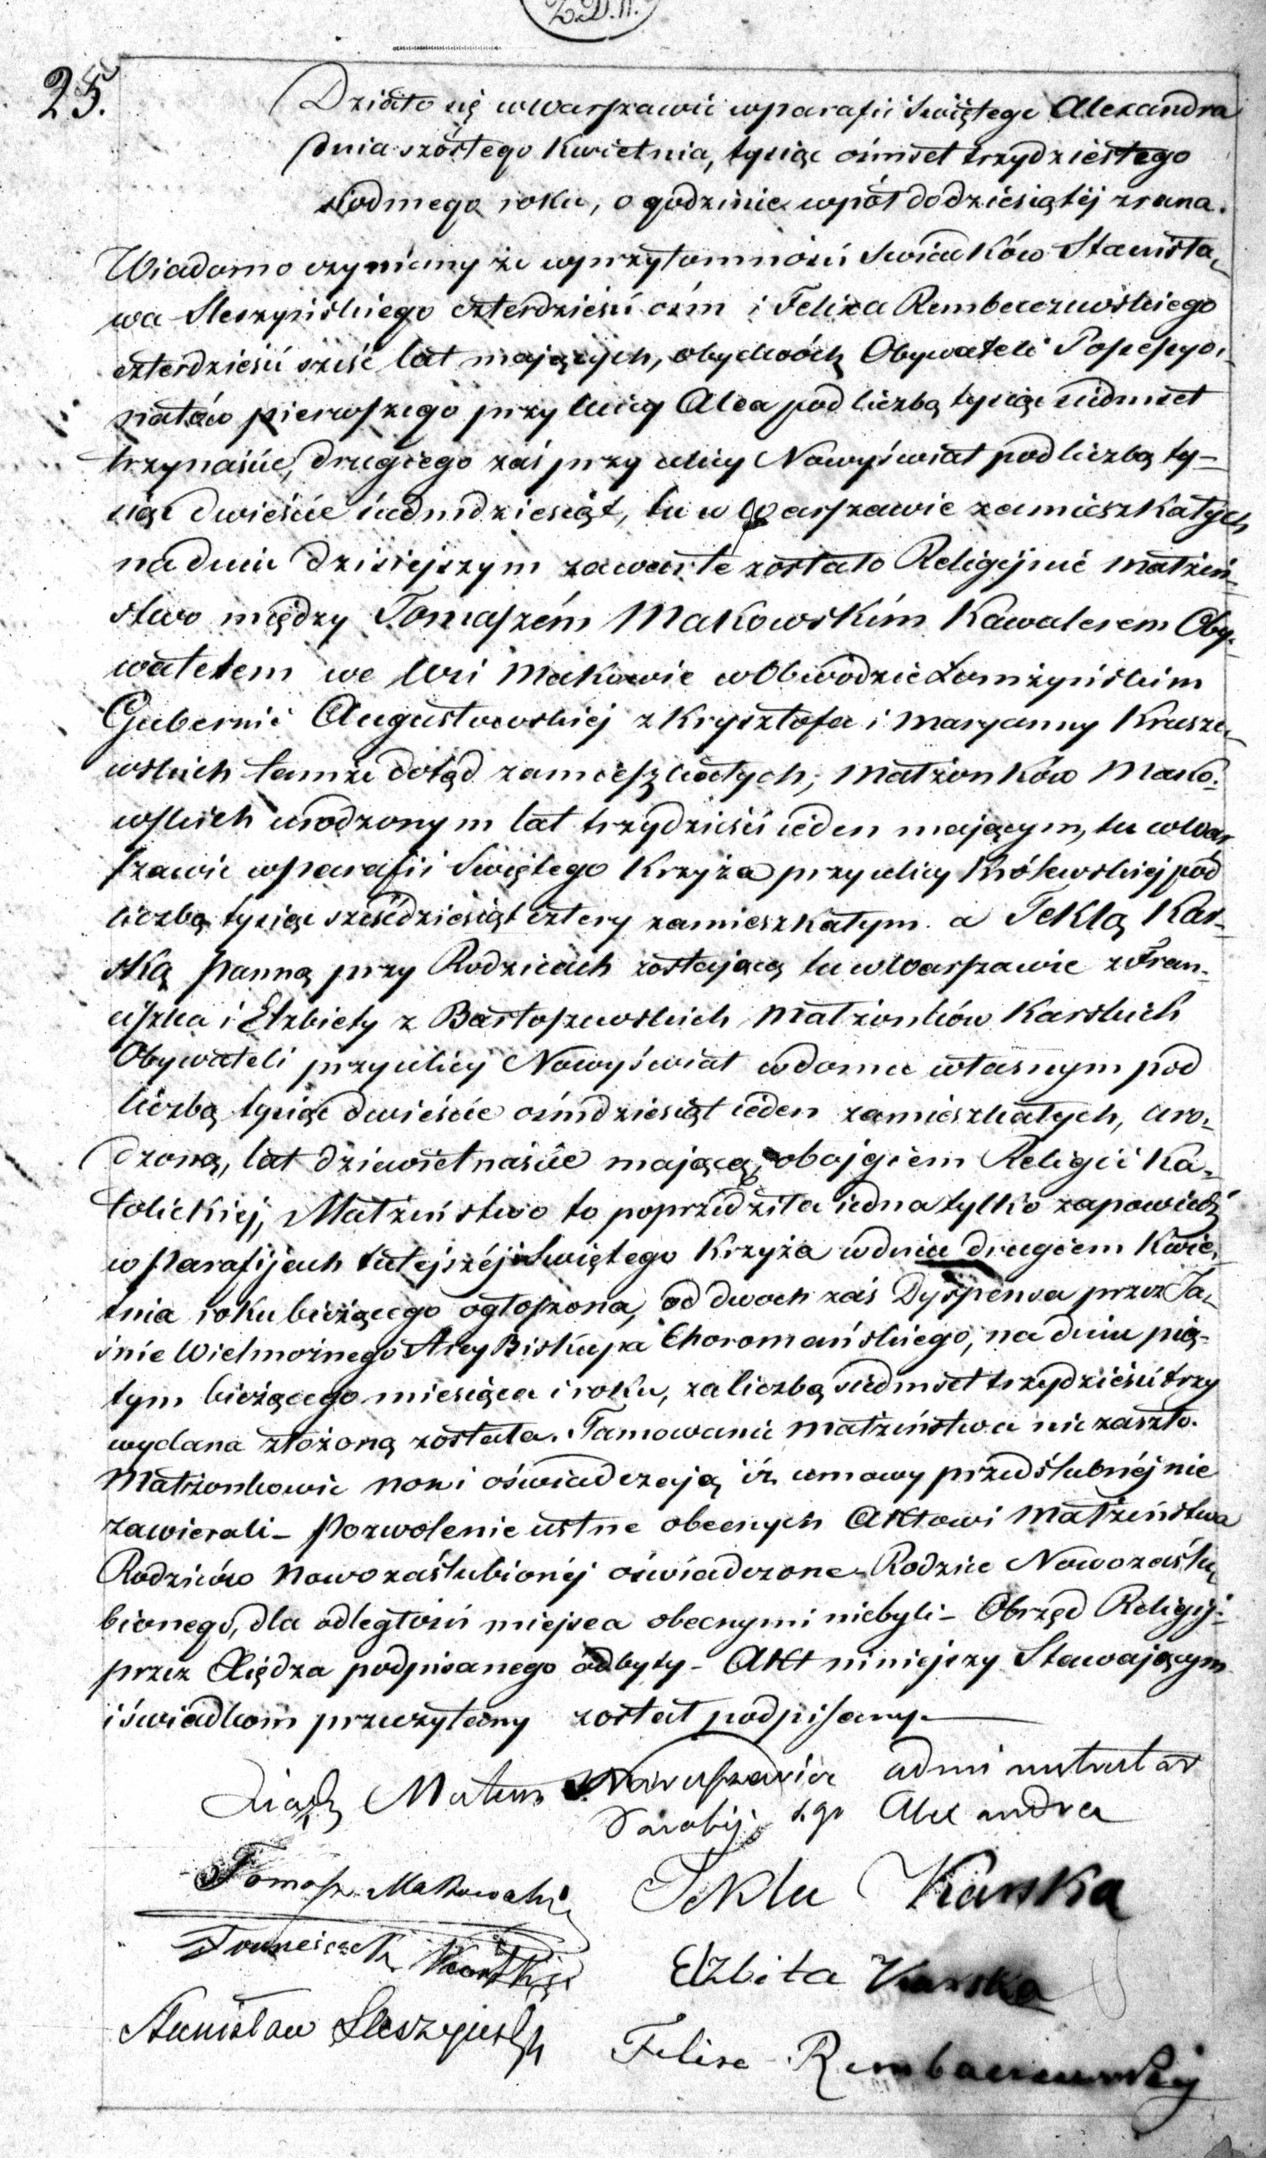 Z.D.A.
25.
Działo się w Warszawie w parafii Świętego Alexandra
dnia szóstego Kwietnia, tysiąc ośmset trzydziestego
siódmego roku, o godzinie wpół do dziesiątej zrana.
Wiadomo czyniemy że w przytomności Świadków Stanisła-
wa Sleszyńskiego czterdzieści ośm i Felixa Rembaczewskiego
czterdzieści sześć lat mających, obydwóch Obywateli Possessyo-
natów pierwszego przy ulicy Alea pod liczbą tysiąc siedmset
trzynaście, drugiego zaś przy ulicy Nowyświat pod liczbą ty-
siąc dwieście siedmdziesiąt, tu w Warszawie zamieszkałych
na dniu dzisiejszym zawarte zostało Religijnie Małżeń-
stwo między Tomaszém Makowskim Kawalerem Oby-
watelem we Wsi Makowie w Obwodzie Łomżyńskim
Gubernii Augustowskiej z Krysztofa i Maryanny Krusze-
wskich tamże dotąd zamieszkałych, Małżonków Mako-
wskich urodzonym lat trzydzieści ieden mającym, tu w War
szawie w Parafii Świętego Krzyża przy ulicy Królewskiej pod
liczbą tysiąc sześćdziesiąt cztery zamieszkałym. a Teklą Kar-
ską Panną przy Rodzicach zostającą tu w Warszawie z Fran-
ciszka i Elzbiety z Bartoszewskich Małżonków Karskich
Obywateli przy ulicy Nowyświat w domu własnym pod
liczbą tysiąc dwieście ośmdziesiąt ieden zamieszkałych, uro-
dzoną, lat dziewiętnaście mającą, obojgiem Religii Ka-
tolickiej, Małżeństwo to poprzedziła iedna tylko zapowiedź
w Parafijach tutejszéj i Świętego Krzyża w dniu drugiem Kwie-
tnia roku bieżącego ogłoszona, od dwoch zaś Dyspensa przez Ja-
śnie Wielmożnego Arcy Biskupa Choromańskiego, na dniu pią-
tym bieżącego miesiąca i roku, za liczbą siedmset trzydzieści trzy
wydana złożoną została. Tamowanie Małżeństwa nie zaszło.
Małżonkowie nowi oświadczają iż umowy przedślubnéj nie
zawierali - Pozwolenie ustne obecnych Aktowi Małżeństwa
Rodziców Nowozaślubionéj oświadczone. Rodzice Nowozaślu-
bionego, dla odległości miejsca obecnymi niebyli - Obrzęd Religij-
przez Xiędza podpisanego odbyty - Akt niniejszy Stawającym
i świadkom przeczytany został podpisany.
Xiądz administrator
Parafij Sgo Alexandra
Tomasz Makowski Tekla Karska
Franciszek Karski Elzbita Karska
Stanisław Sleszyński Felixs Rembaczewskij